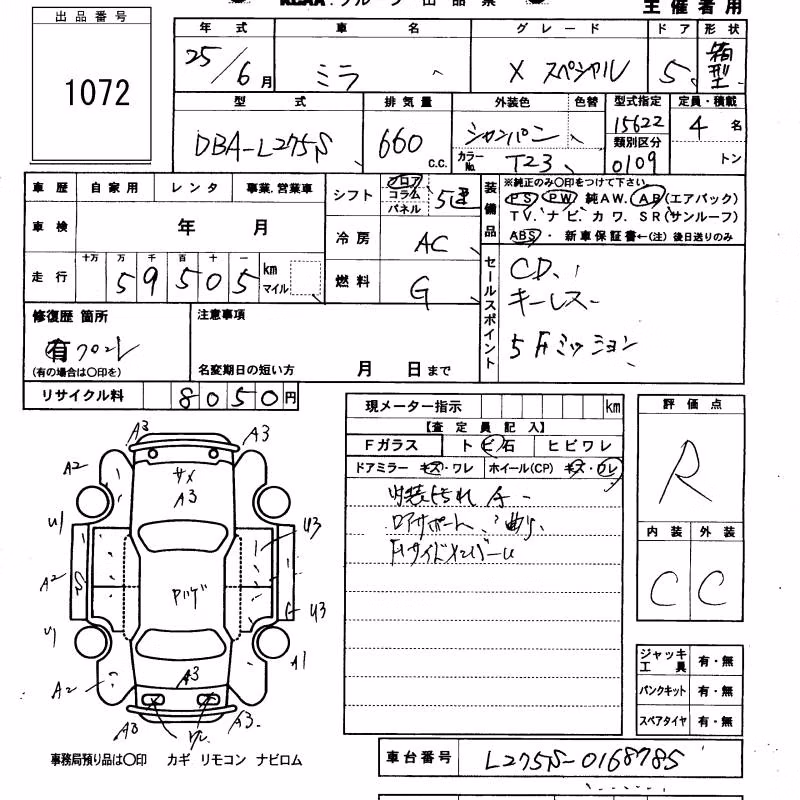 主催者用
出品番号
1072
年式 車名 グレード ドア 形状
25/6月 ミラ X スペシャル 5 箱型
型式 排気量 外装色 色替 型式指定 定員・積載
DBA-L275S 660 c.c. シャンパン 15622 4名
カラーNo. T23 類別区分 0109 トン
車歴 自家用 レンタ 事業.営業車
シフト フロア コラム パネル 5速
装備品 ※純正のみ〇印をつけて下さい。
PS PW 純AW. AB(エアバック)
TV. ナビ. カワ. SR(サンルーフ)
ABS・ 新車保証書←(注)後日送りのみ
車検 年 月
冷房 AC
走行 十万 万 千 百 十 一 km マイル
59505
燃料 G
セールスポイント
CD.
キーレス
5Fミッション
修復歴 箇所
有 フロント
(有の場合は〇印を)
注意事項
名変期日の短い方 月 日まで
リサイクル料 8050円
現メーター指示 km
【査定員記入】
Fガラス トビ石 ヒビワレ
ドアミラー キズ・ワレ ホイール(CP) キズ・ワレ
内装よごれ
ロアサポート 曲り
Fサイドメンバーu
評価点
R
内装 外装
C C
ジャッキ工具 有・無
パンクキット 有・無
スペアタイヤ 有・無
A3 A3
A2 サメ A3
U1 U3
A2 S
U3
U1 A1
A2 A3
A3 A3
事務局預り品は〇印 カギ リモコン ナビロム
車台番号 L275S-0168785